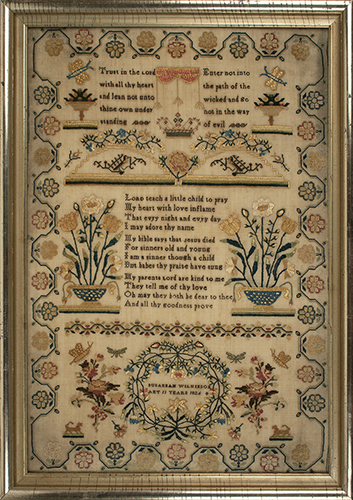 Trust in the Lord
with all thy heart
and lean not unto
thine own under
standing
Enter not into
the path of the
wicked and go
not in the way
of evil
Lord teach a little child to pray
My heart with love inflame
That evry night and evry day
I may adore thy name
My bible says that Jesus died
For sinners old and young
I am a sinner though a child
But babes thy praise have sung
My parents Lord are kind to me
They tell me of thy love
Oh may they both be dear to thee
And all thy goodness prove
WILKINSON
AGT 11 YEARS